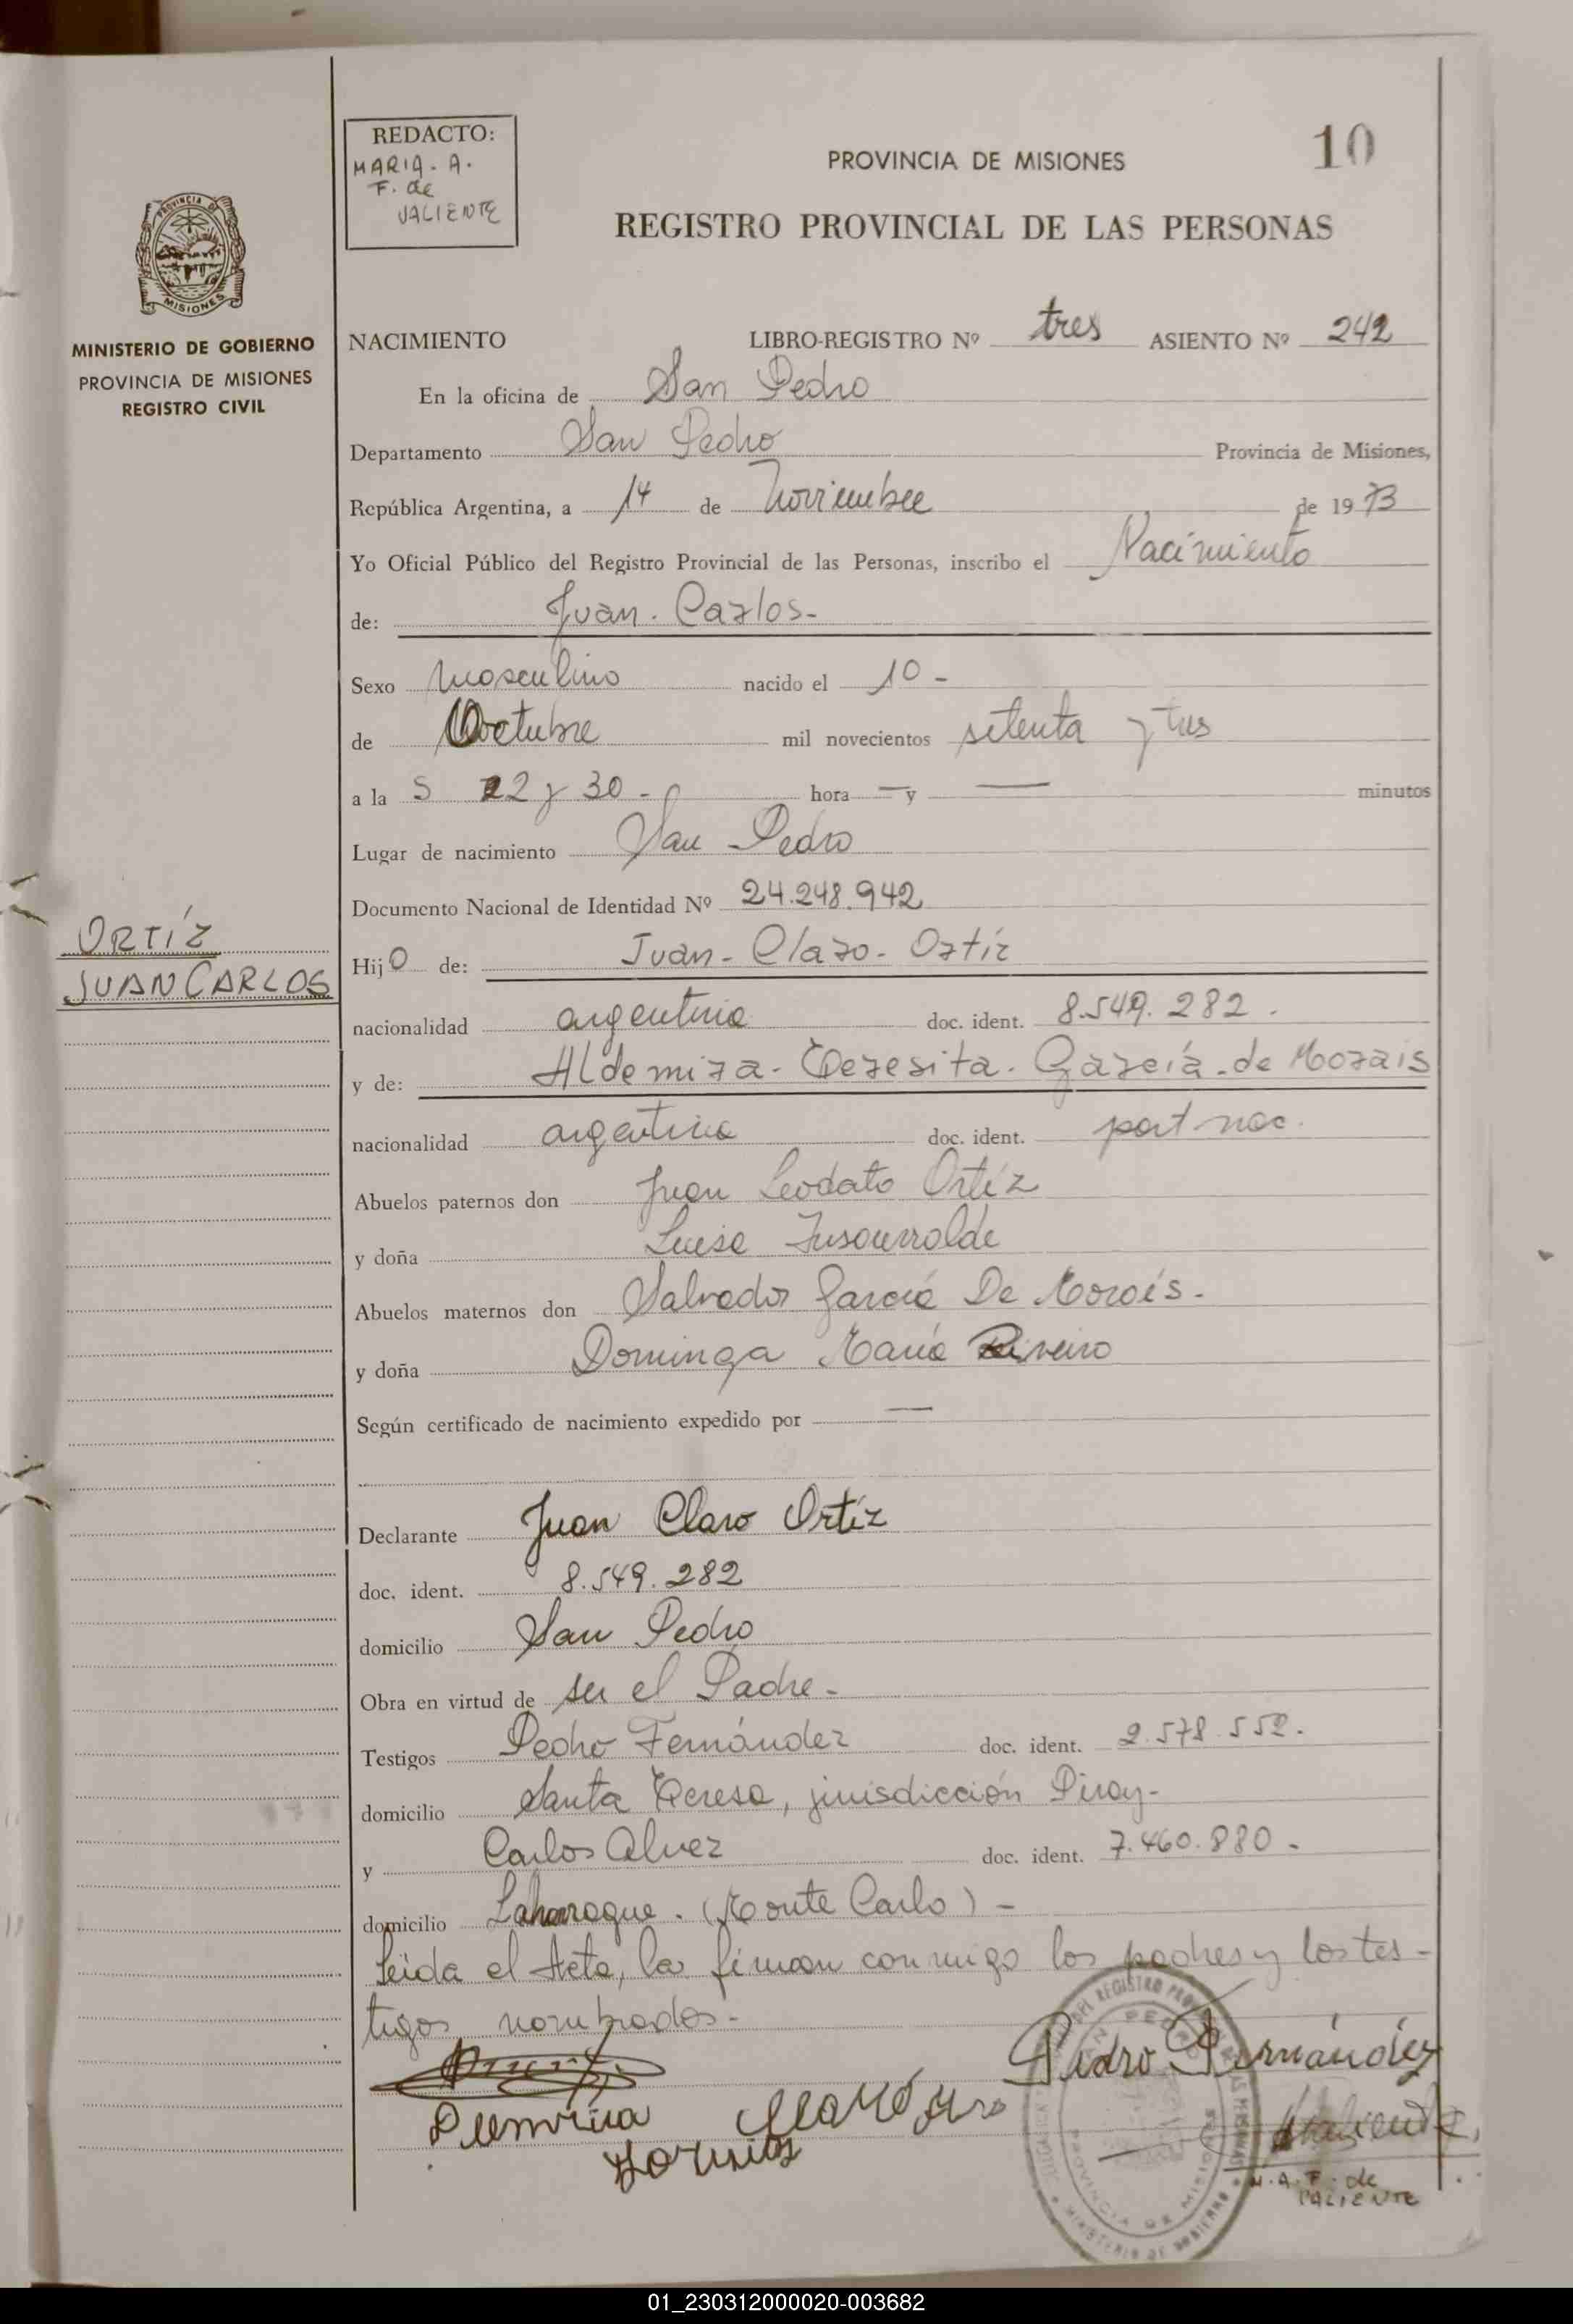 10
REDACTO:
MARIA. A.
F. de
VALIENTE
PROVINCIA DE MISIONES
REGISTRO PROVINCIAL DE LAS PERSONAS
PROVINCIA DE
MISIONES
MINISTERIO DE GOBIERNO
PROVINCIA DE MISIONES
REGISTRO CIVIL
NACIMIENTO LIBRO-REGISTRO Nº tres ASIENTO Nº 242
En la oficina de San Pedro
Departamento San Pedro Provincia de Misiones,
República Argentina, a 14 de Noviembre de 1973
Yo Oficial Público del Registro Provincial de las Personas, inscribo el Nacimiento
de: Juan. Carlos-
Sexo masculino nacido el 10-
de Octubre mil novecientos setenta y tres
a la s 22 y 30- hora — y — minutos
Lugar de nacimiento San Pedro
Documento Nacional de Identidad Nº 24.248.942
ORTÍZ
JUAN CARLOS
Hijo de: Juan- Claro- Ortíz
nacionalidad argentina doc. ident. 8.549.282.
y de: Aldemira. Teresita. García. de Morais
nacionalidad argentina doc. ident. part nac.
Abuelos paternos don Juan Leodato Ortíz
y doña Luisa
Abuelos maternos don Salvador García De Morais.
y doña Dominga María Riveiro
Según certificado de nacimiento expedido por —
Declarante Juan Claro Ortíz
doc. ident. 8.549.282
domicilio San Pedro
Obra en virtud de ser el Padre-
Testigos Pedro Fernández doc. ident. 2.578.552.
domicilio Santa Teresa, jurisdicción Piray-
y Carlos Alvez doc. ident. 7.460.880-
domicilio Laharrague. (Monte Carlo)-
Leida el Acta, la firman conmigo los padres y los tes-
tigos nombrados-
Pedro Fernández
Valiente
M.A.F. de
VALIENTE
01_230312000020-003682